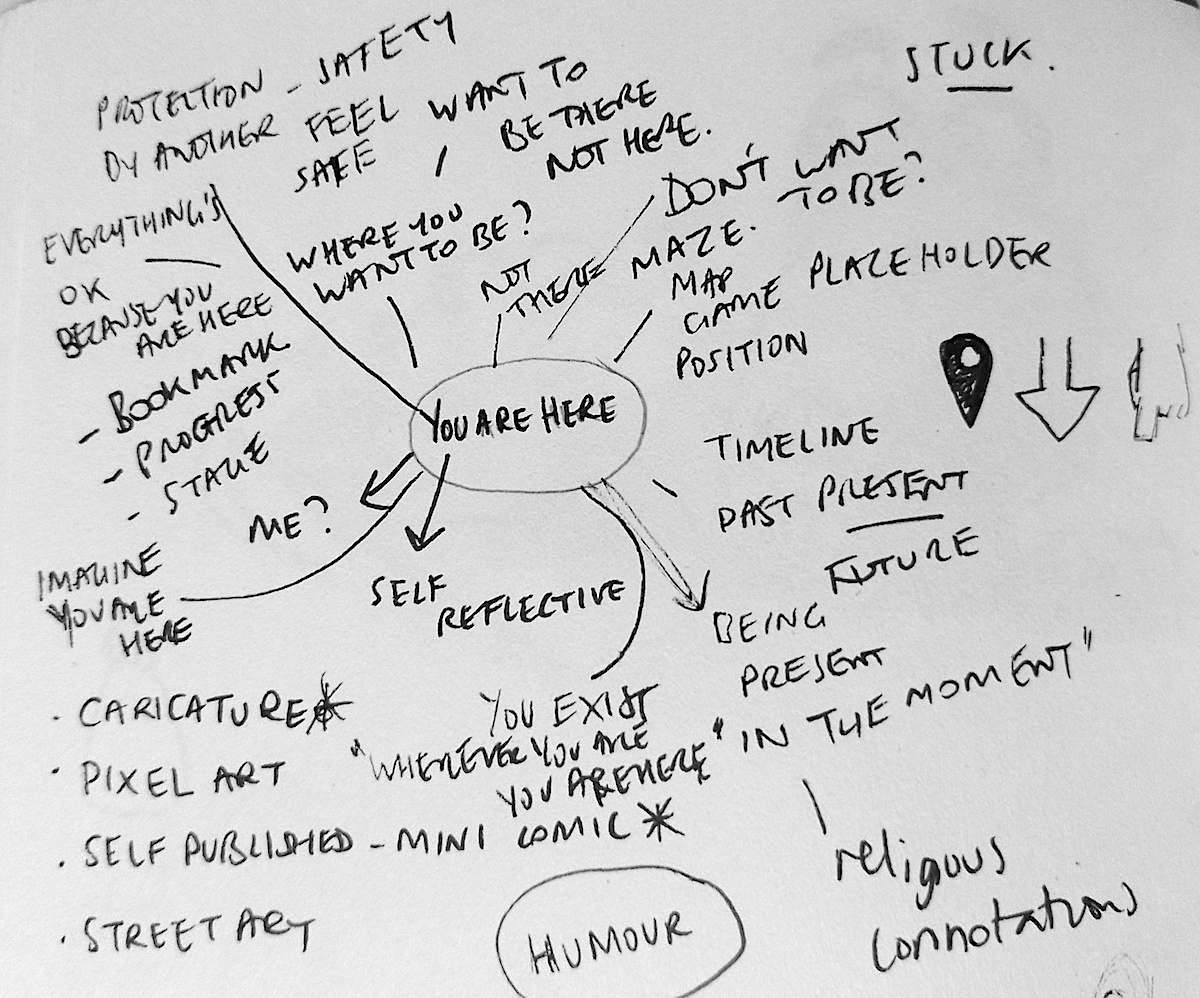 STUCK.
PROTECTION - SAFETY
BY ANOTHER FEEL
SAFE
WANT TO
BE THERE
NOT HERE.
EVERYTHING'S
OK
BECAUSE YOU
ARE HERE
WHERE YOU
WANT TO BE?
NOT
THERE
DON'T WANT
TO BE?
MAZE.
MAP
GAME PLACEHOLDER
POSITION
- BOOKMARK
- PROGRESS
- STAGE
YOU ARE HERE
TIMELINE
PAST PRESENT
FUTURE
ME?
IMAGINE
YOU ARE
HERE
SELF
REFLECTIVE
BEING
PRESENT
"IN THE MOMENT"
religious
connotations
YOU EXIST
"WHEREVER YOU ARE
YOU ARE HERE"
· CARICATURE*
· PIXEL ART
· SELF PUBLISHED - MINI COMIC *
· STREET ART
HUMOUR